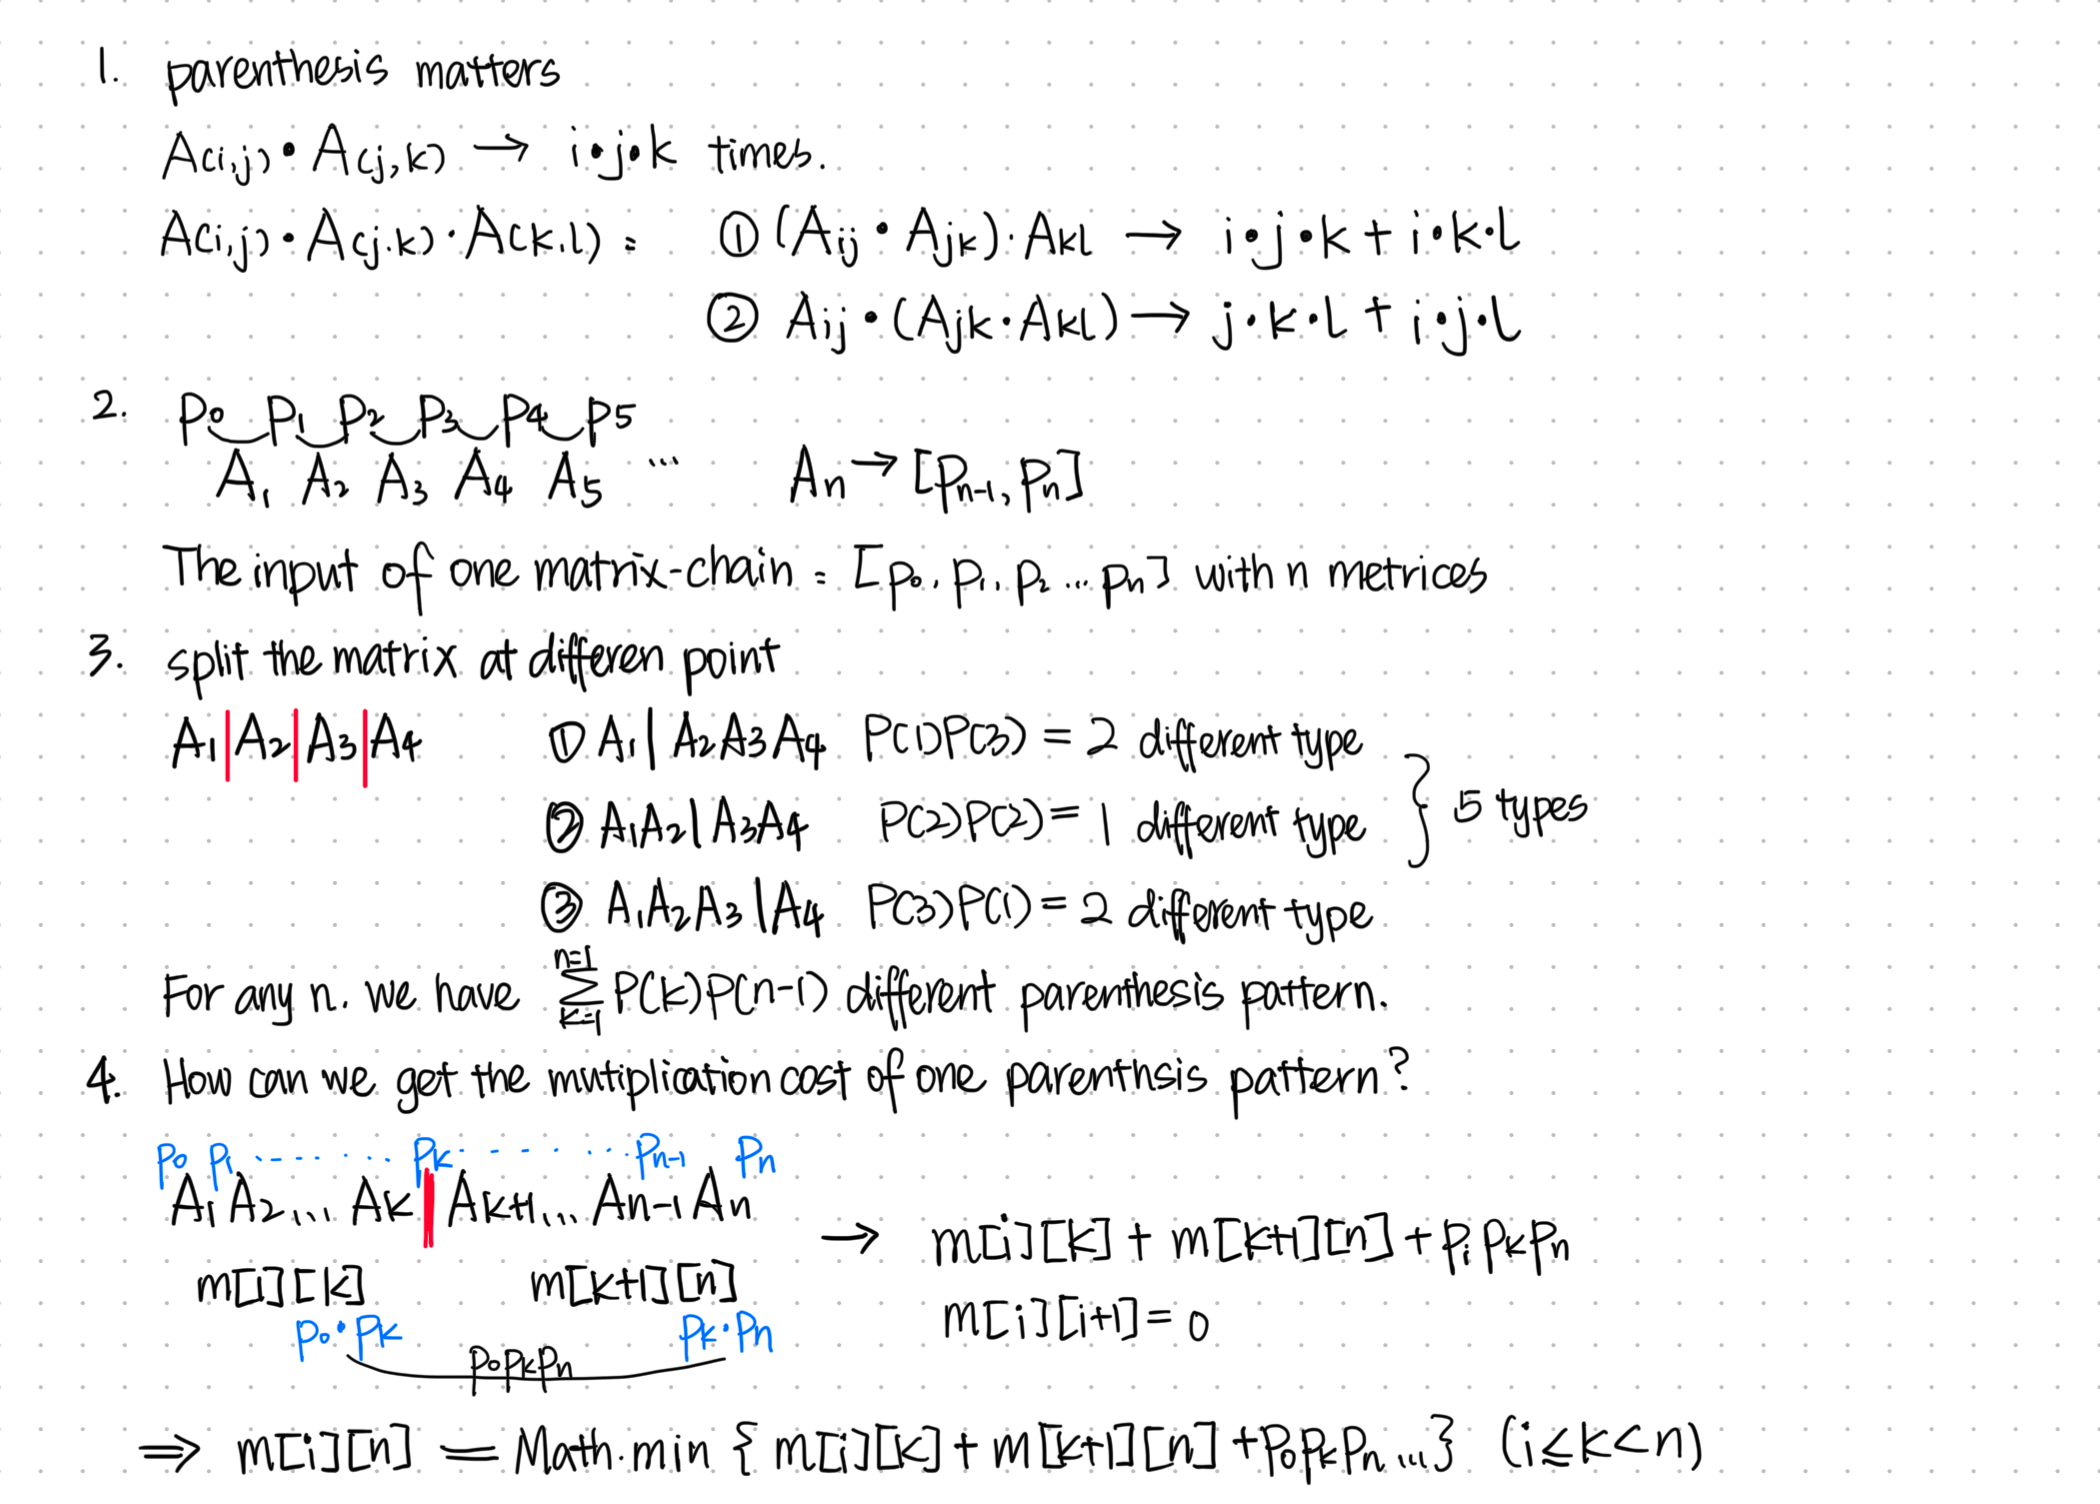 1. parenthesis matters
A(i,j) • A(j,k) → i•j•k times.
A(i,j) • A(j.k) · A(k.l) : ① (Aij • Ajk) · Akl → i•j•k + i•k•l
② Aij • (Ajk · Akl) → j•k•l + i•j•l
2. P0 P1 P2 P3 P4 P5
A1 A2 A3 A4 A5 ... An → [Pn-1, Pn]
The input of one matrix-chain : [P0, P1, P2 ... Pn] with n metrices
3. split the matrix at differen point
A1|A2|A3|A4 ① A1 | A2A3A4 P(1)P(3) = 2 different type
② A1A2 | A3A4 P(2)P(2) = 1 different type } 5 types
③ A1A2A3 | A4 P(3)P(1) = 2 different type
For any n. we have ∑_{k=1}^{n=1} P(k)P(n-1) different parenthesis pattern.
4. How can we get the mutiplication cost of one parenthsis pattern?
P0 P1 ......... Pk ......... Pn-1 Pn
A1 A2 ... Ak || Ak+1 ... An-1 An → m[i][k] + m[k+1][n] + Pi Pk Pn
m[i][k] m[k+1][n] m[i][i+1] = 0
P0•Pk Pk•Pn
P0PkPn
⇒ m[i][n] = Math.min { m[i][k] + m[k+1][n] + P0PkPn ... } (i≤k<n)